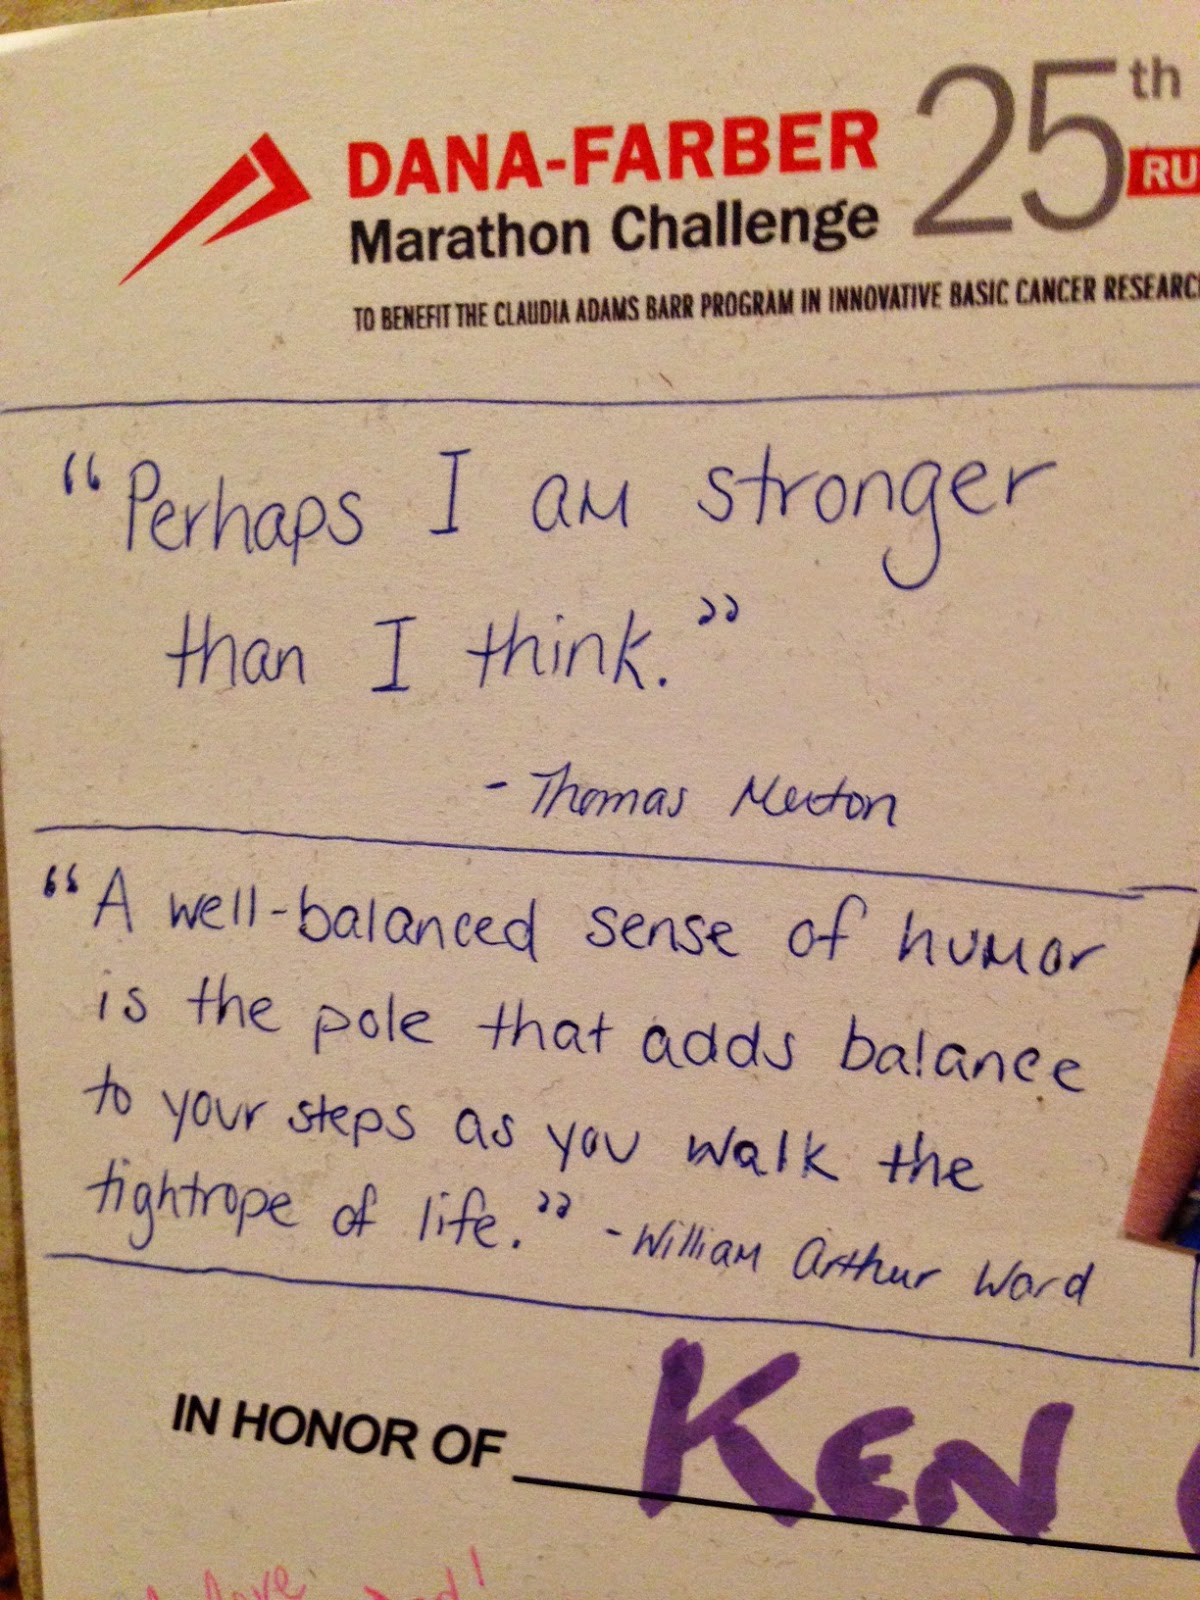 DANA-FARBER 25th
Marathon Challenge RU
TO BENEFIT THE CLAUDIA ADAMS BARR PROGRAM IN INNOVATIVE BASIC CANCER RESEARC
“Perhaps I am stronger
than I think.”
- Thomas Merton
“A well-balanced sense of humor
is the pole that adds balance
to your steps as you walk the
tightrope of life.” - William Arthur Ward
IN HONOR OF KEN